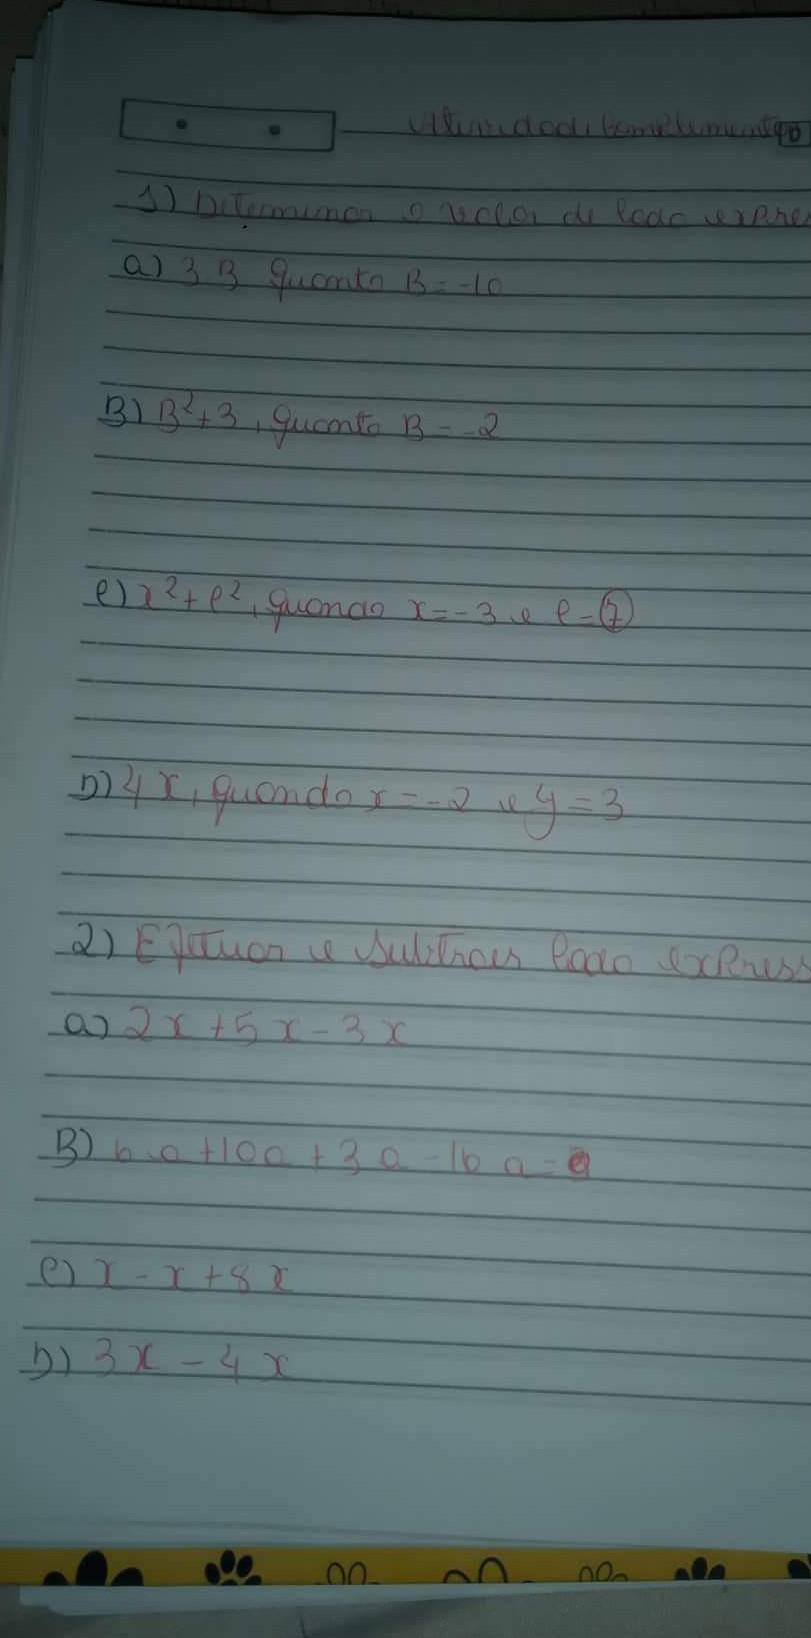 Atividade Complementar
1) Determinar o valor de cada expre
a) 3 B quanto B = -10
B) B²+3, quanto B = -2
c) x²+c², quando x = -3 e c = 7
D) 4x, quando x = -2 e y = 3
2) Efetuar e subtrair cada express
a) 2x + 5x - 3x
B) 6a + 10a + 3a - 16a =
c) x - x + 8x
D) 3x - 4x